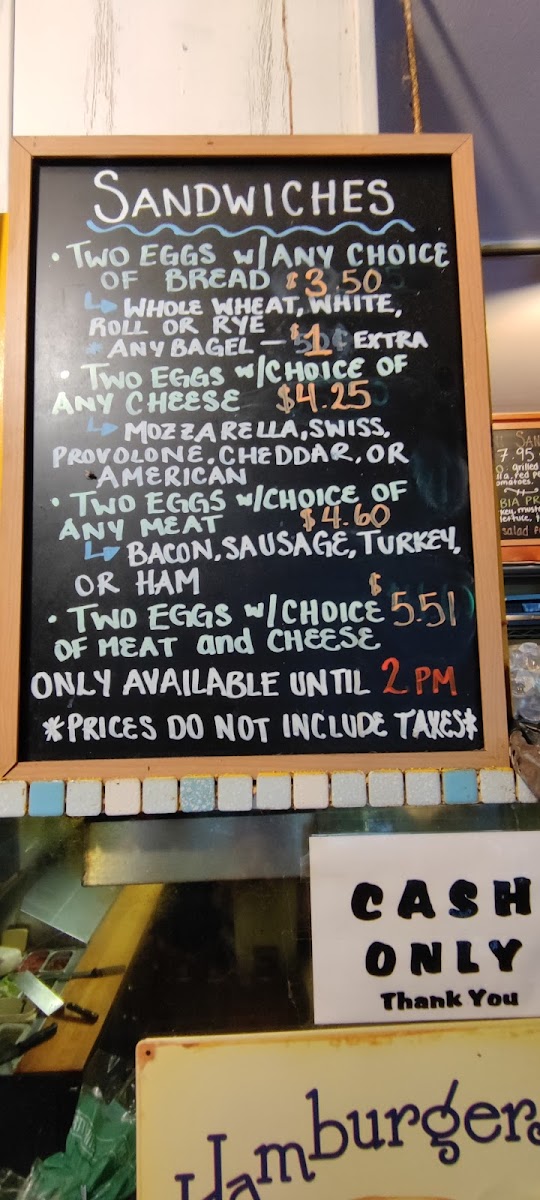 SANDWICHES
• TWO EGGS w/ANY CHOICE
OF BREAD $3.50
WHOLE WHEAT, WHITE,
ROLL OR RYE
ANY BAGEL — $1 EXTRA
• TWO EGGS w/CHOICE OF
ANY CHEESE $4.25
MOZZARELLA, SWISS,
PROVOLONE, CHEDDAR, OR
AMERICAN
• TWO EGGS w/CHOICE OF
ANY MEAT $4.60
BACON, SAUSAGE, TURKEY,
OR HAM
• TWO EGGS w/CHOICE $5.51
OF MEAT and CHEESE
ONLY AVAILABLE UNTIL 2 PM
*PRICES DO NOT INCLUDE TAXES*
7.95
grilled
CASH
ONLY
Thank You
Hamburgers